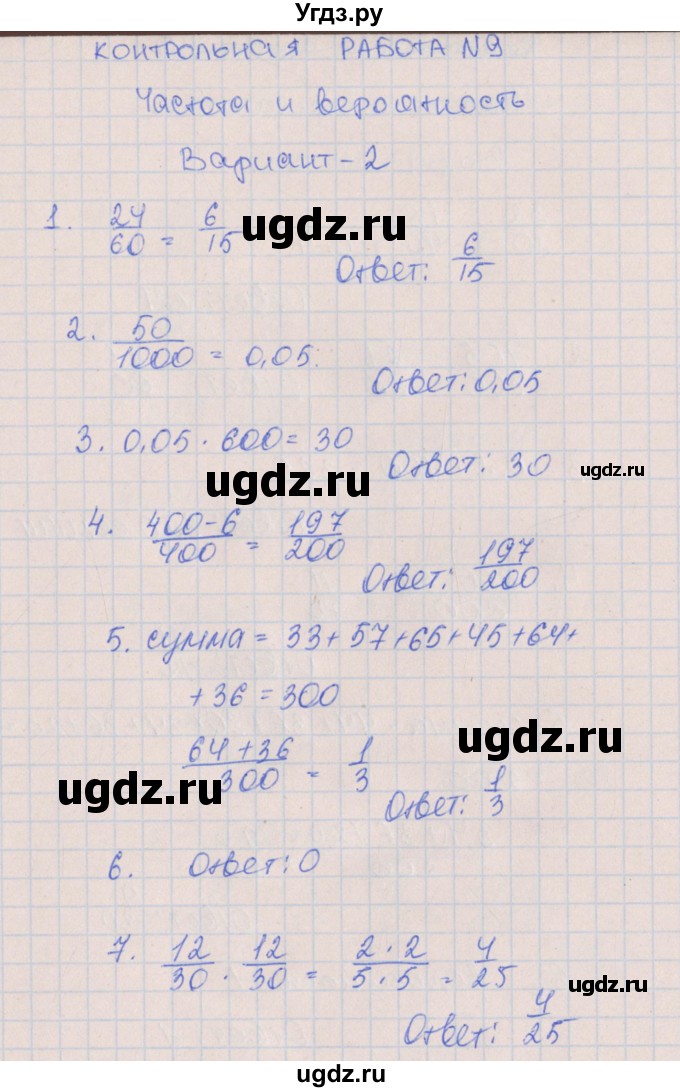 Угдз.ру
КОНТРОЛЬНАЯ РАБОТА N9
Частота и вероятность
Вариант-2
1. 24/60 = 6/15
ugdz.ru
Ответ: 6/15
2. 50/1000 = 0,05.
Ответ: 0,05
3. 0,05 · 600 = 30
Ответ: 30
ugdz.ru
ugdz.ru
4. 400-6/400 = 197/200
Ответ: 197/200
5. сумма = 33+57+65+45+64+
+36 = 300
64+36/300 = 1/3
ugdz.ru
ugdz.ru
Ответ: 1/3
6. Ответ: 0
7. 12/30 · 12/30 = 2·2/5·5 = 4/25
ugdz.ru
Ответ: 4/25
Угдз.ру